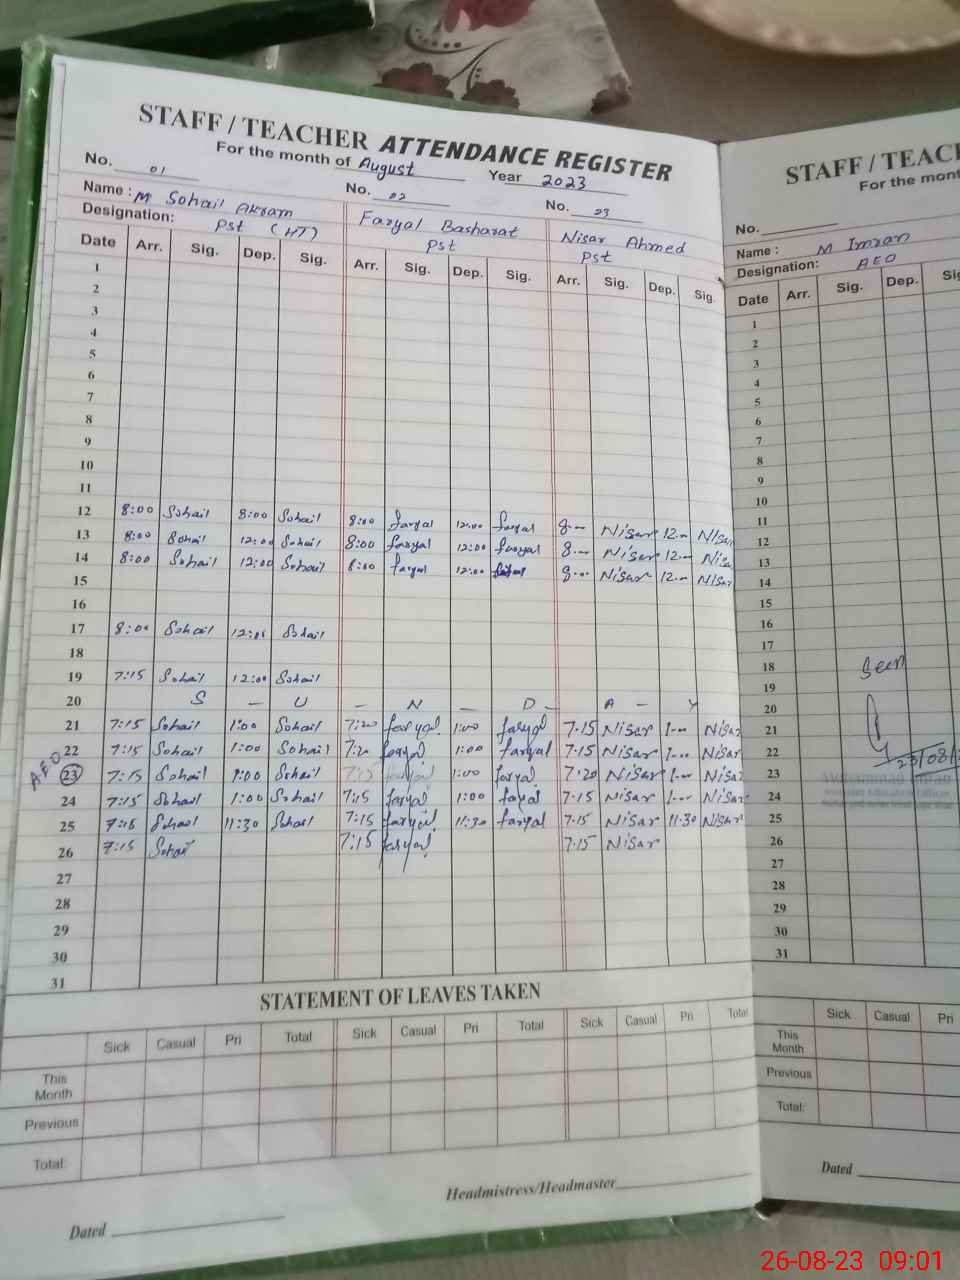 STAFF / TEACHER ATTENDANCE REGISTER
For the month of August Year 2023
No. 01 No. 02 No. 03
Name : M Sohail Akram Faryal Basharat Nisar Ahmed
Designation: Pst (HT) Pst Pst
Date Arr. Sig. Dep. Sig. Arr. Sig. Dep. Sig. Arr. Sig. Dep. Sig.
1
2
3
4
5
6
7
8
9
10
11
12 8:00 Sohail 8:00 Sohail 8:00 faryal 12:00 faryal 8-- Nisar 12-- Nisar
13 8:00 Sohail 12:00 Sohail 8:00 faryal 12:00 faryal 8-- Nisar 12-- Nisa
14 8:00 Sohail 12:00 Sohail 8:00 faryal 12:00 8-- Nisar 12-- Nisar
15
16
17 8:00 Sohail 12:00 Sohail
18
19 7:15 Sohail 12:00 Sohail
20 S - U - N - D - A - Y
21 7:15 Sohail 1:00 Sohail 7:20 faryal 1:00 faryal 7.15 Nisar 1-- Nisar
22 7:15 Sohail 1:00 Sohail 7:20 faryal 1:00 faryal 7.15 Nisar 1-- Nisar
AEO 23 7:15 Sohail 1:00 Sohail 7:15 faryal 1:00 faryal 7.20 Nisar 1-- Nisar
24 7:15 Sohail 1:00 Sohail 7:15 faryal 1:00 faryal 7.15 Nisar 1-- Nisar
25 7:15 Sohail 11:30 Sohail 7:15 faryal 11:30 faryal 7.15 Nisar 11.30 Nisar
26 7:15 Sohail 7:15 faryal 7.15 Nisar
27
28
29
30
31
STATEMENT OF LEAVES TAKEN
Sick Casual Pri Total Sick Casual Pri Total Sick Casual Pri Total
This Month
Previous
Total:
Headmistress/Headmaster
Dated
STAFF / TEAC
For the mont
No.
Name : M Imran
Designation: AEO
Date Arr. Sig. Dep. Sig
1
2
3
4
5
6
7
8
9
10
11
12
13
14
15
16
17
18 Seen
19
20
21
22 23/08/
23
24
25
26
27
28
29
30
31
Sick Casual Pri
This Month
Previous
Total:
Dated
26-08-23 09:01